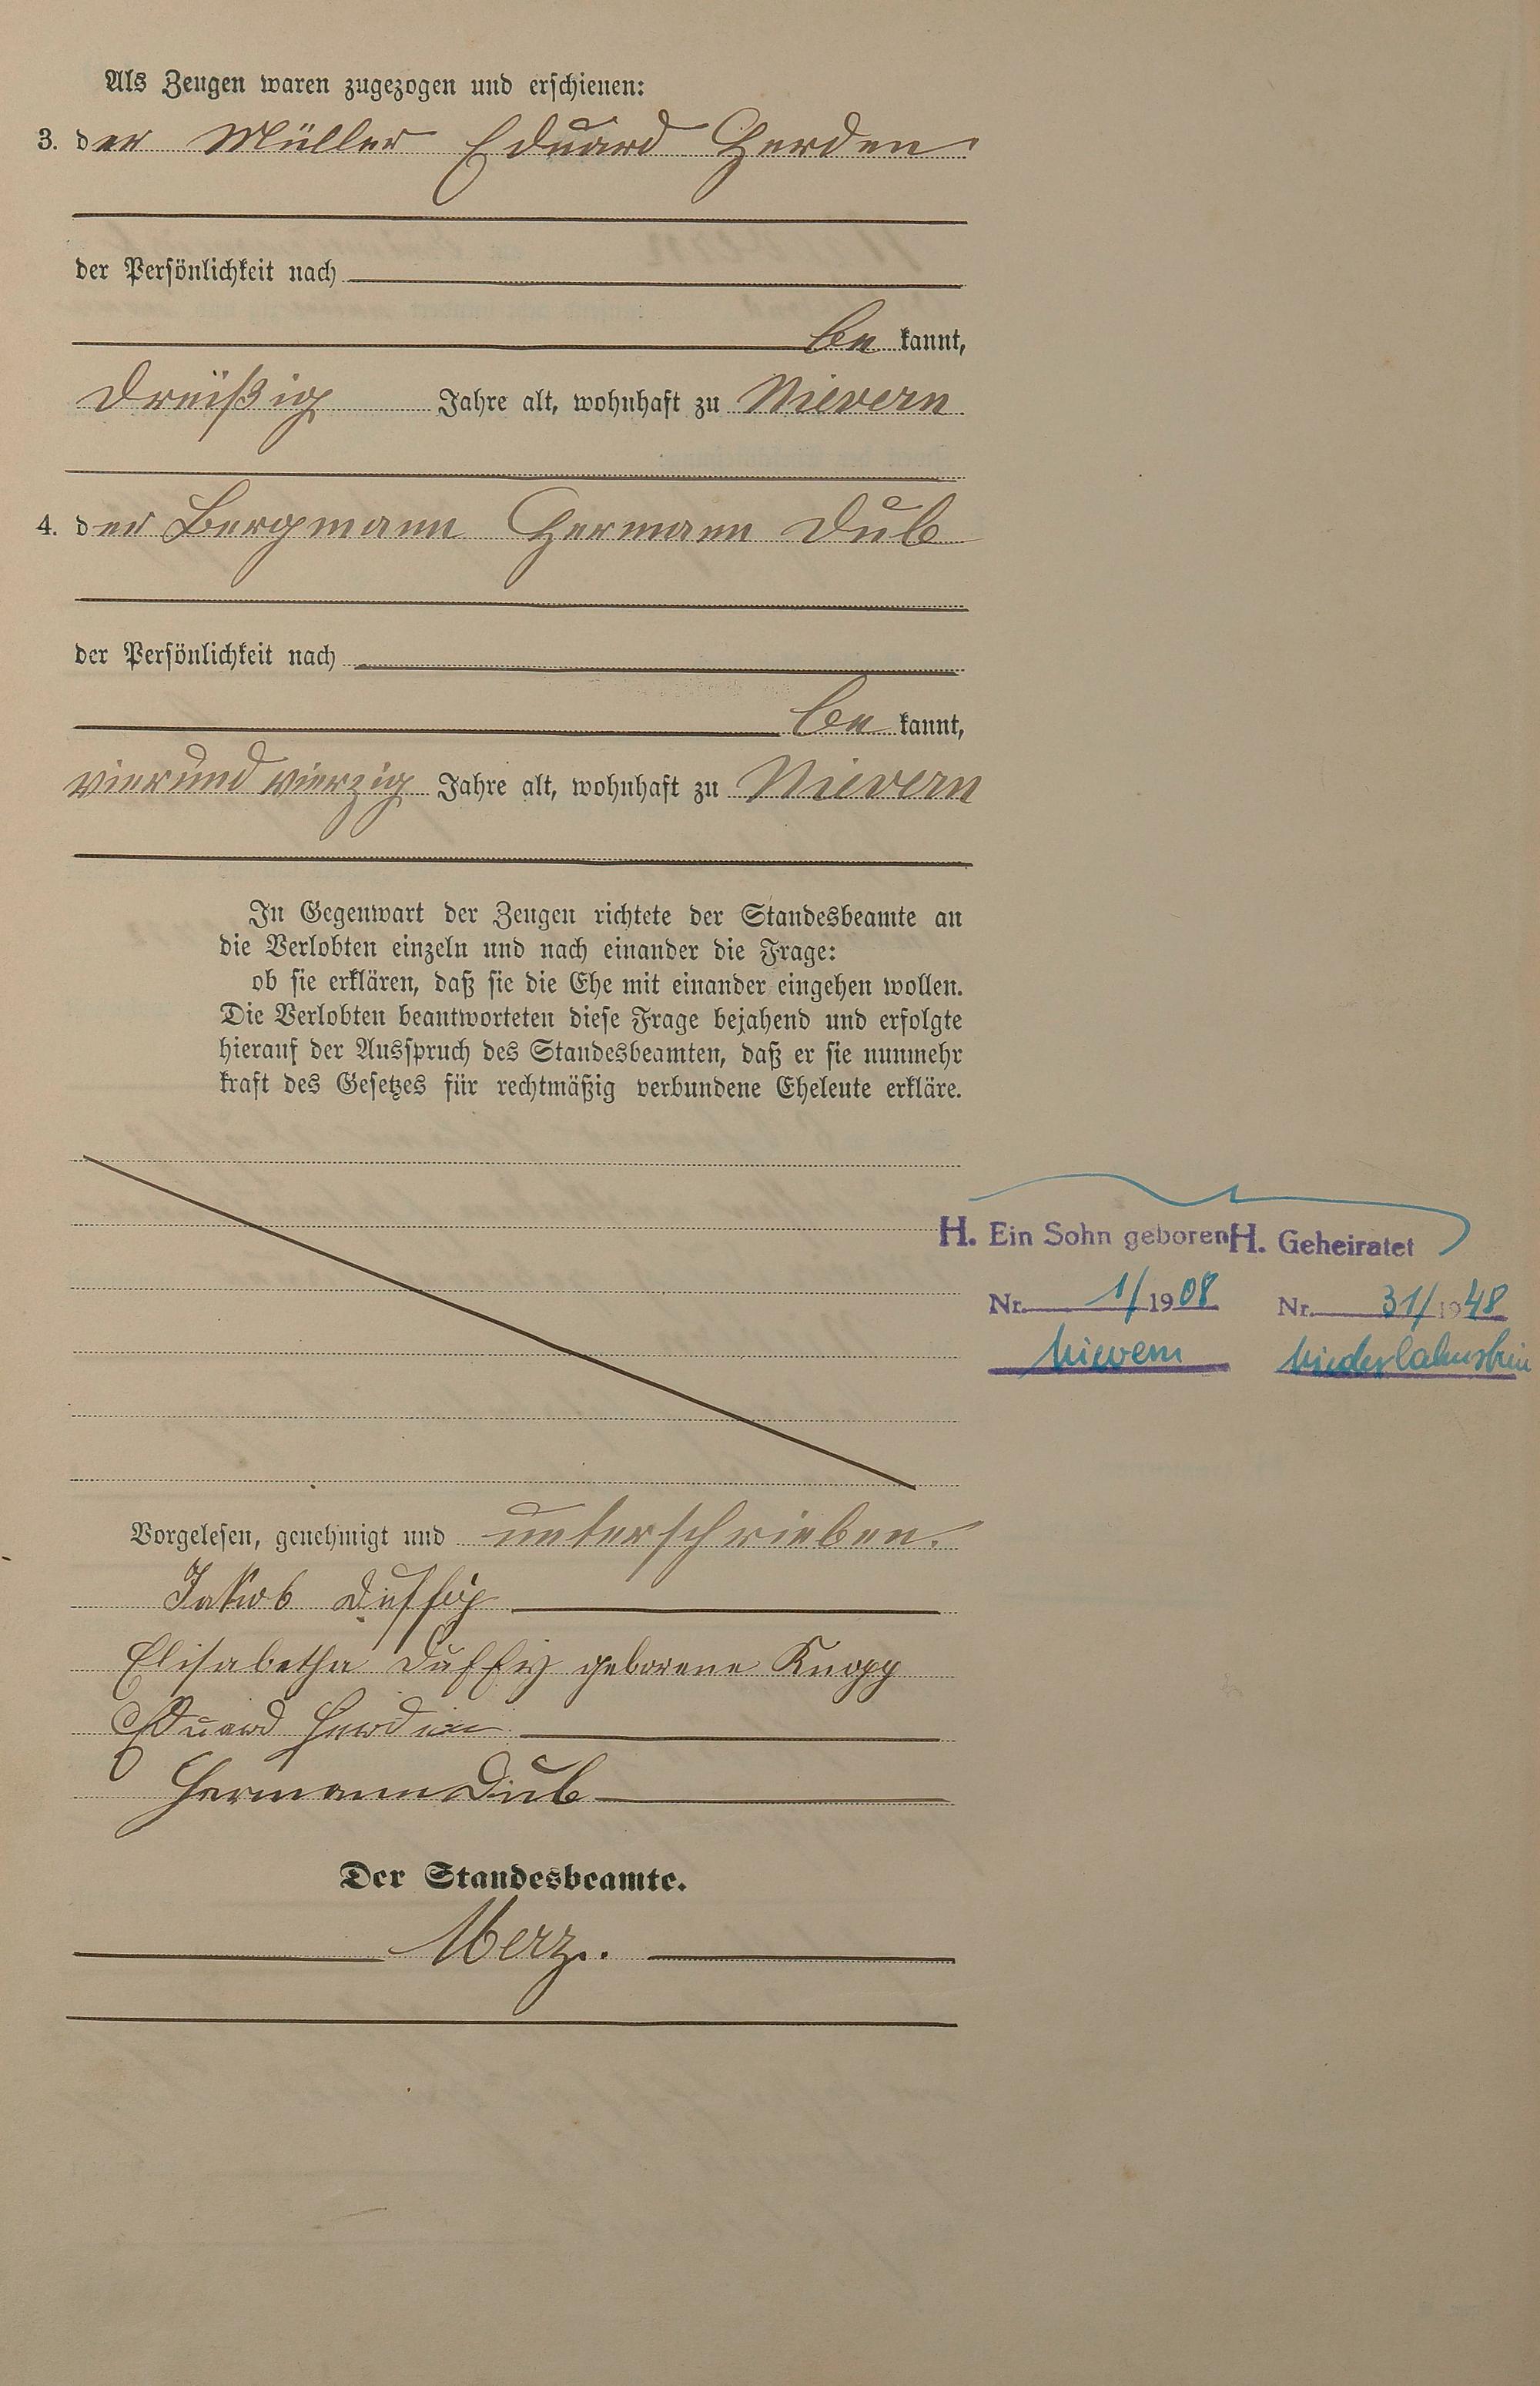 Als Zeugen waren zugezogen und erschienen:
3. der Müller Eduard Herden
der Persönlichkeit nach
be kannt,
dreißig Jahre alt, wohnhaft zu Nievern
4. der Bergmann Hermann Dub
der Persönlichkeit nach
be kannt,
vierundvierzig Jahre alt, wohnhaft zu Nievern
In Gegenwart der Zeugen richtete der Standesbeamte an
die Verlobten einzeln und nach einander die Frage:
ob sie erklären, daß sie die Ehe mit einander eingehen wollen.
Die Verlobten beantworteten diese Frage bejahend und erfolgte
hierauf der Ausspruch des Standesbeamten, daß er sie nunmehr
kraft des Gesetzes für rechtmäßig verbundene Eheleute erkläre.
H. Ein Sohn geboren
Nr. 1/1908
Nievern
H. Geheiratet
Nr. 31/1948
Niederlahnstein
Vorgelesen, genehmigt und unterschrieben.
Jakob Duffy
Elisabetha Duffy geborene Knopp
Eduard Herden
Hermann Dub
Der Standesbeamte.
Merz.